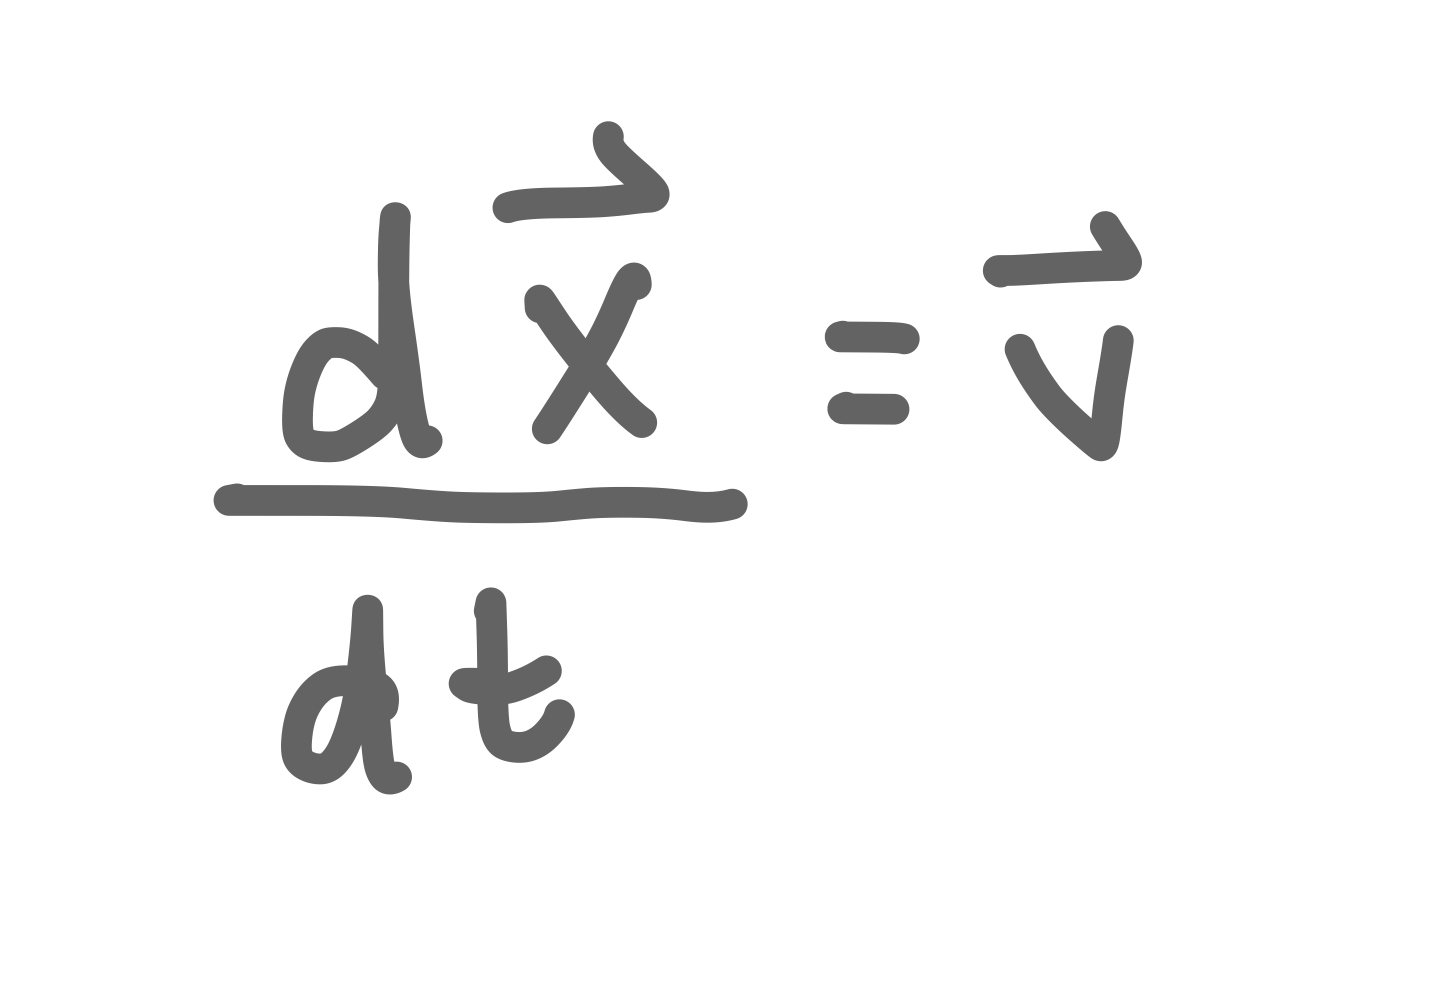 \frac{d\vec{x}}{dt} = \vec{v}